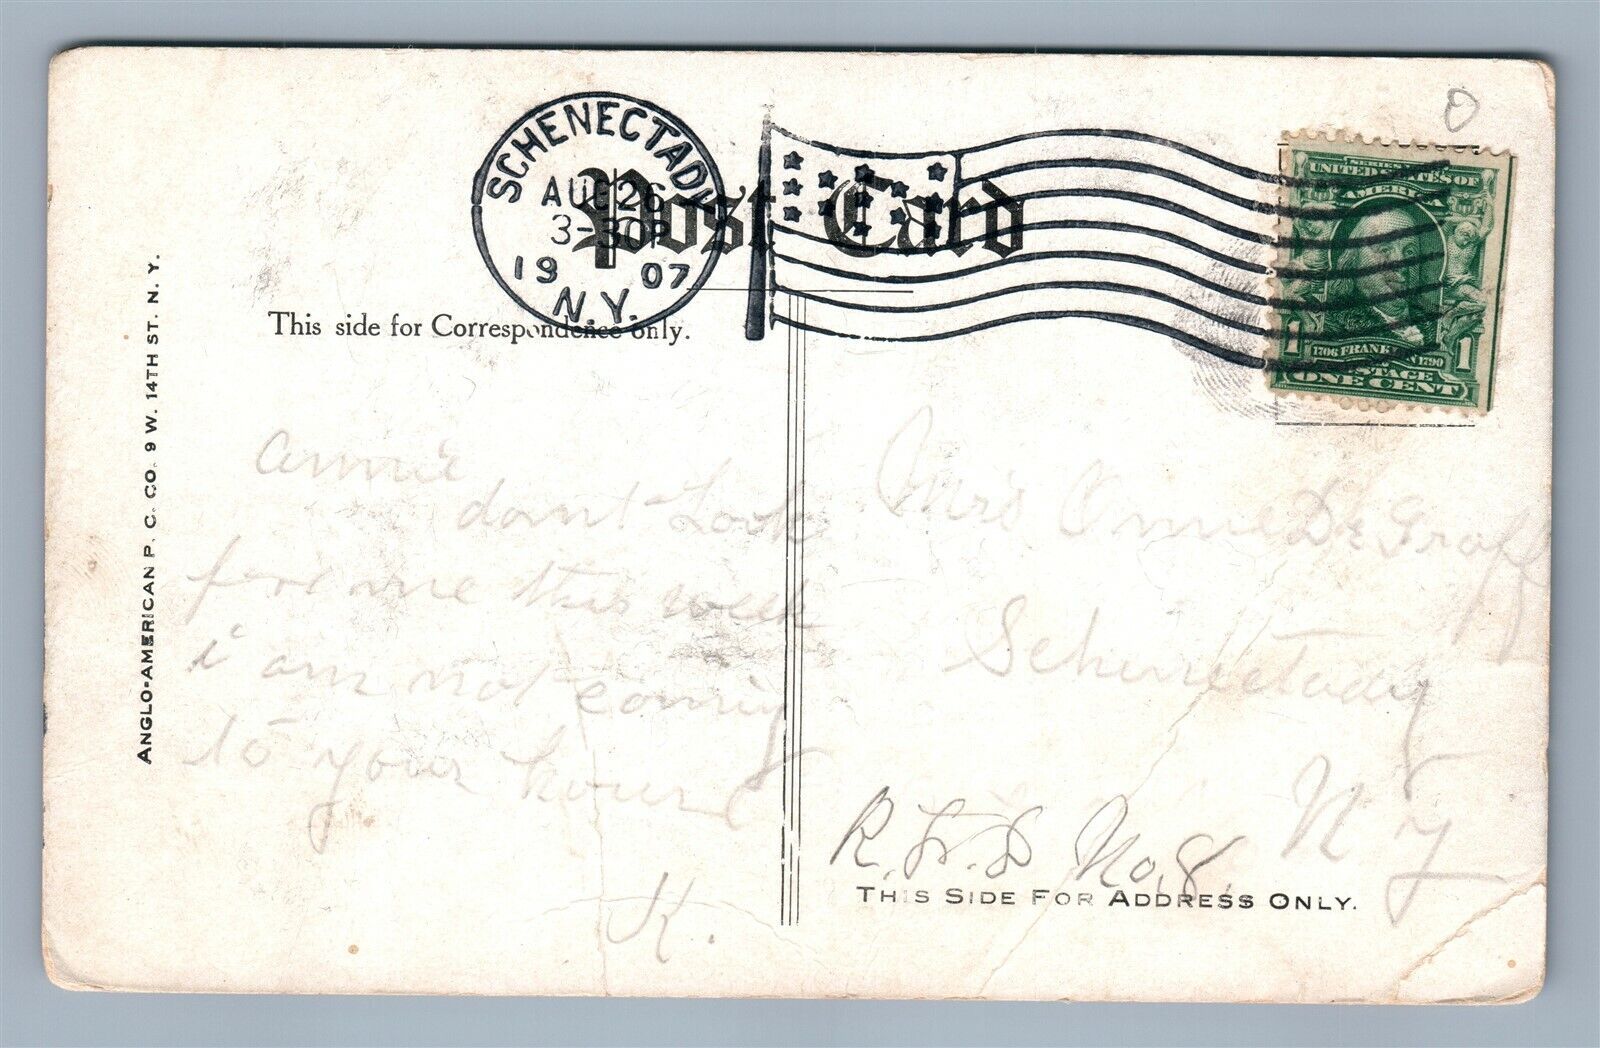 SCHENECTADY
AUG 26
3-30P
1907
N.Y.
Post Card
SERIES
UNITED STATES OF
AMERICA
1 1706 FRANKLIN 1790 1
POSTAGE
ONE CENT
This side for Correspondence only.
ANGLO-AMERICAN P. C. CO. 9 W. 14TH ST. N. Y.
annie
dont Look
for me this week
i am not coming
to your house
K.
Mrs Annie De Graff
Schenectady
N y
R. F. D No. 8.
THIS SIDE FOR ADDRESS ONLY.